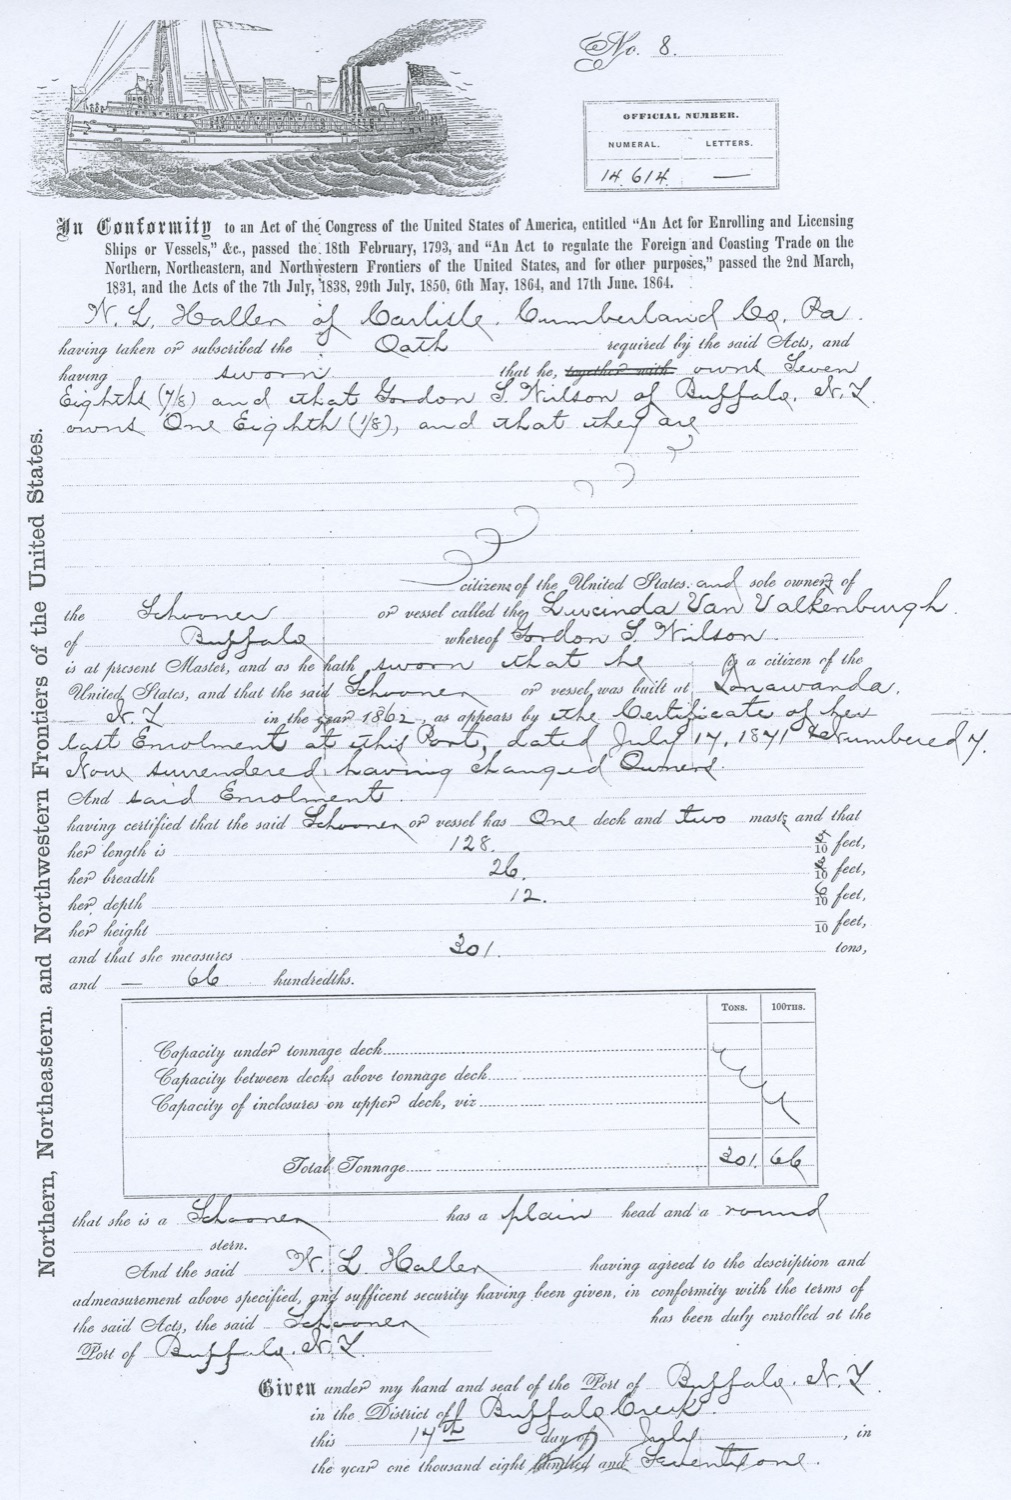 No. 8.
OFFICIAL NUMBER.
NUMERAL. LETTERS.
14.614 —
In Conformity to an Act of the Congress of the United States of America, entitled “An Act for Enrolling and Licensing
Ships or Vessels,” &c., passed the 18th February, 1793, and “An Act to regulate the Foreign and Coasting Trade on the
Northern, Northeastern, and Northwestern Frontiers of the United States, and for other purposes,” passed the 2nd March,
1831, and the Acts of the 7th July, 1838, 29th July, 1850, 6th May, 1864, and 17th June, 1864.
W. L. Haller of Carlisle. Cumberland Co. Pa.
having taken or subscribed the Oath required by the said Acts, and
having sworn that he, together with owns Seven
Eighths (7/8) and that Gordon S. Wilson of Buffalo, N.Y.
owns One Eighth (1/8), and that they are
citizens of the United States and sole owners of
the Schooner or vessel called the Lucinda Van Valkenburgh
of Buffalo whereof Gordon S. Wilson
is at present Master, and as he hath sworn that he is a citizen of the
United States, and that the said Schooner or vessel was built at Tonawanda,
N.Y. in the year 1862, as appears by the Certificate of her
last Enrolment at this Port, dated July 17, 1871 & Numbered 7.
Now surrendered, having changed Owners.
And said Enrolment
having certified that the said Schooner or vessel has One deck and two masts and that
her length is 128. /10 feet,
her breadth 26. /10 feet,
her depth 12. 6/10 feet,
her height /10 feet,
and that she measures 301. tons,
and — 66 hundredths.
TONS. 100THS.
Capacity under tonnage deck
Capacity between decks above tonnage deck
Capacity of inclosures on upper deck, viz
Total Tonnage 301. 66
that she is a Schooner has a plain head and a round
stern.
And the said W. L. Haller having agreed to the description and
admeasurement above specified, and sufficent security having been given, in conformity with the terms of
the said Acts, the said Schooner has been duly enrolled at the
Port of Buffalo. N.Y.
Given under my hand and seal of the Port of Buffalo. N.Y.
in the District of Buffalo Creek.
this 17th day of July, in
the year one thousand eight hundred and Seventy one.
Northern, Northeastern, and Northwestern Frontiers of the United States.